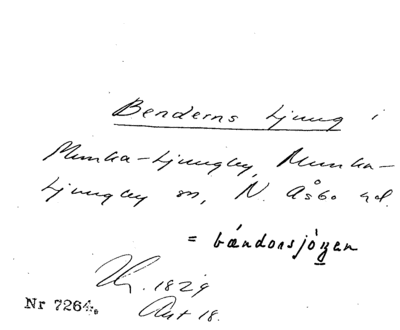 Benderns Ljung i
Munka-Ljungby, Munka-
Ljungby sn, N. Åsbo hd.
= bǽndonsjòŋen
1829
Akt 18.
Nr 7264.